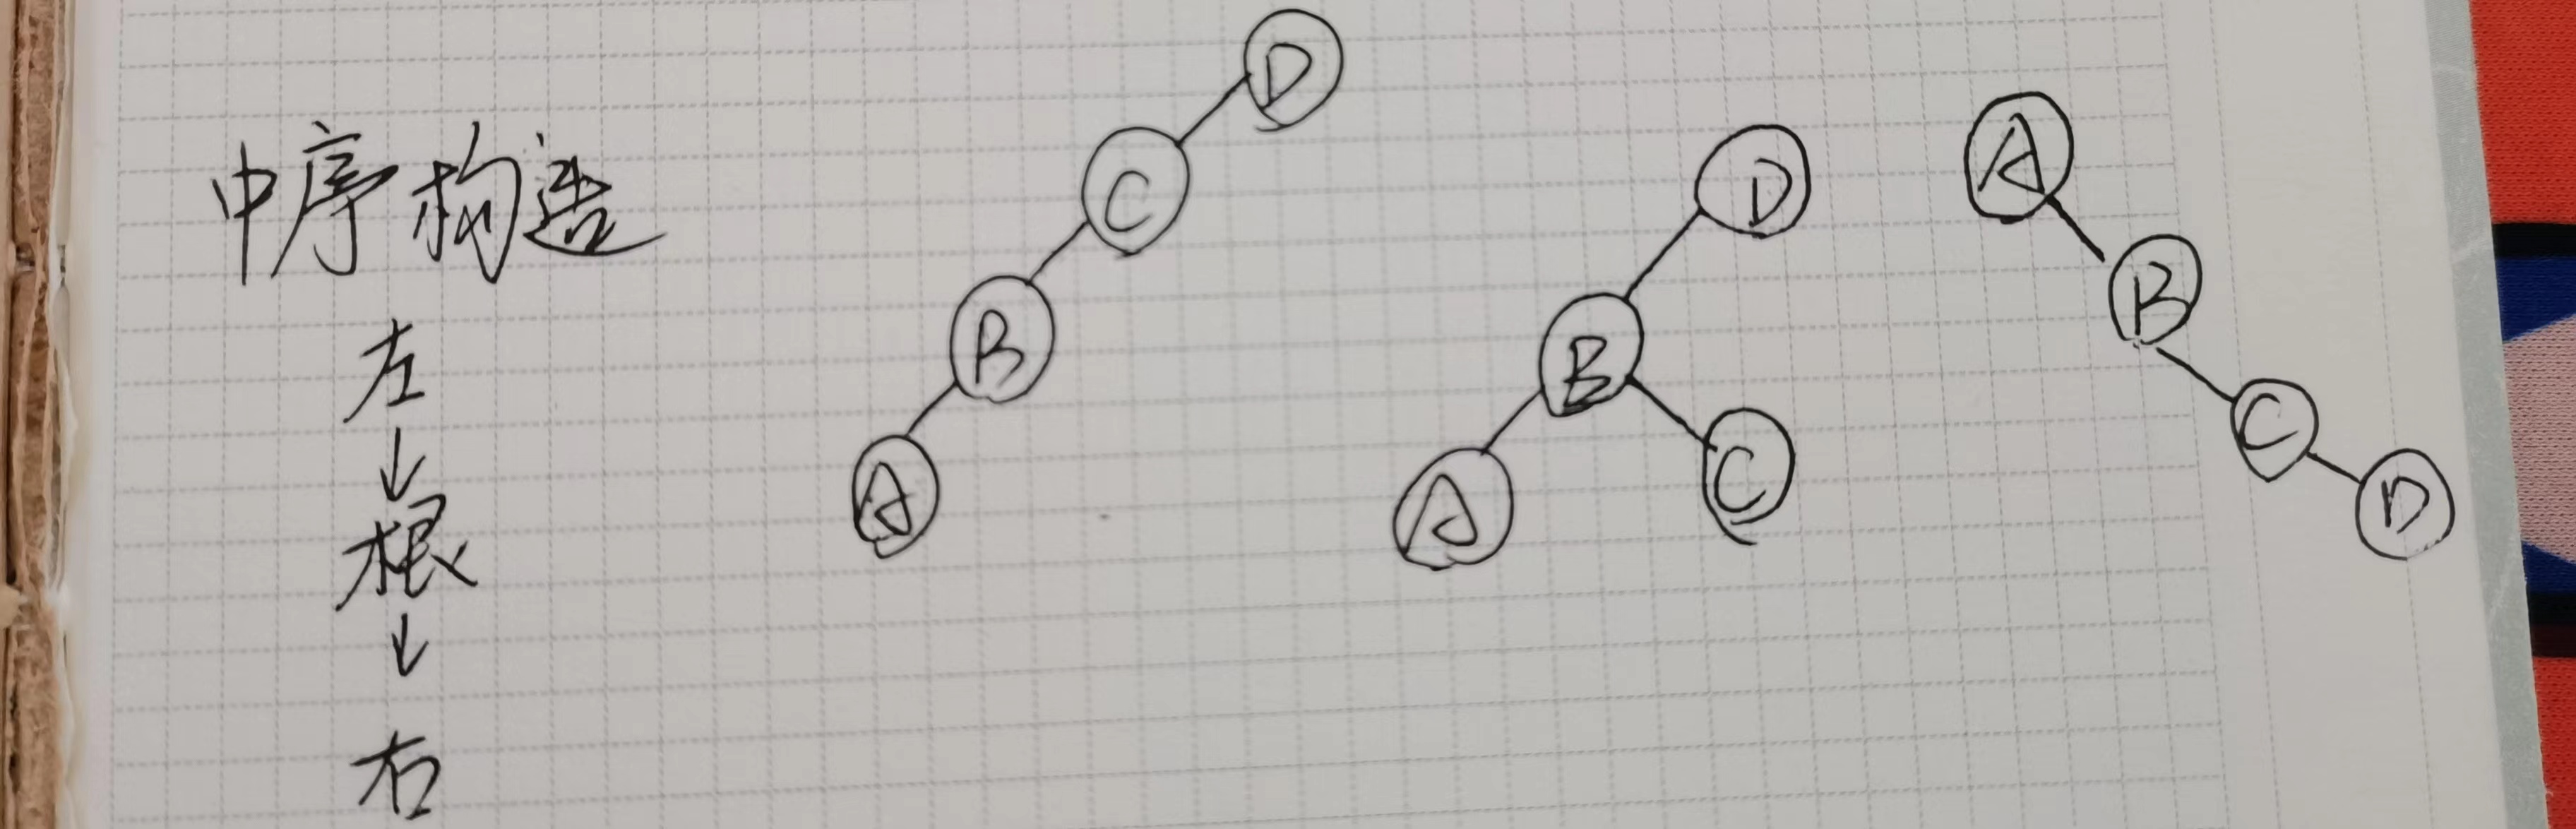 中序构造
左
↓
根
↓
右
D
C
B
A
D
B
A
C
A
B
C
D